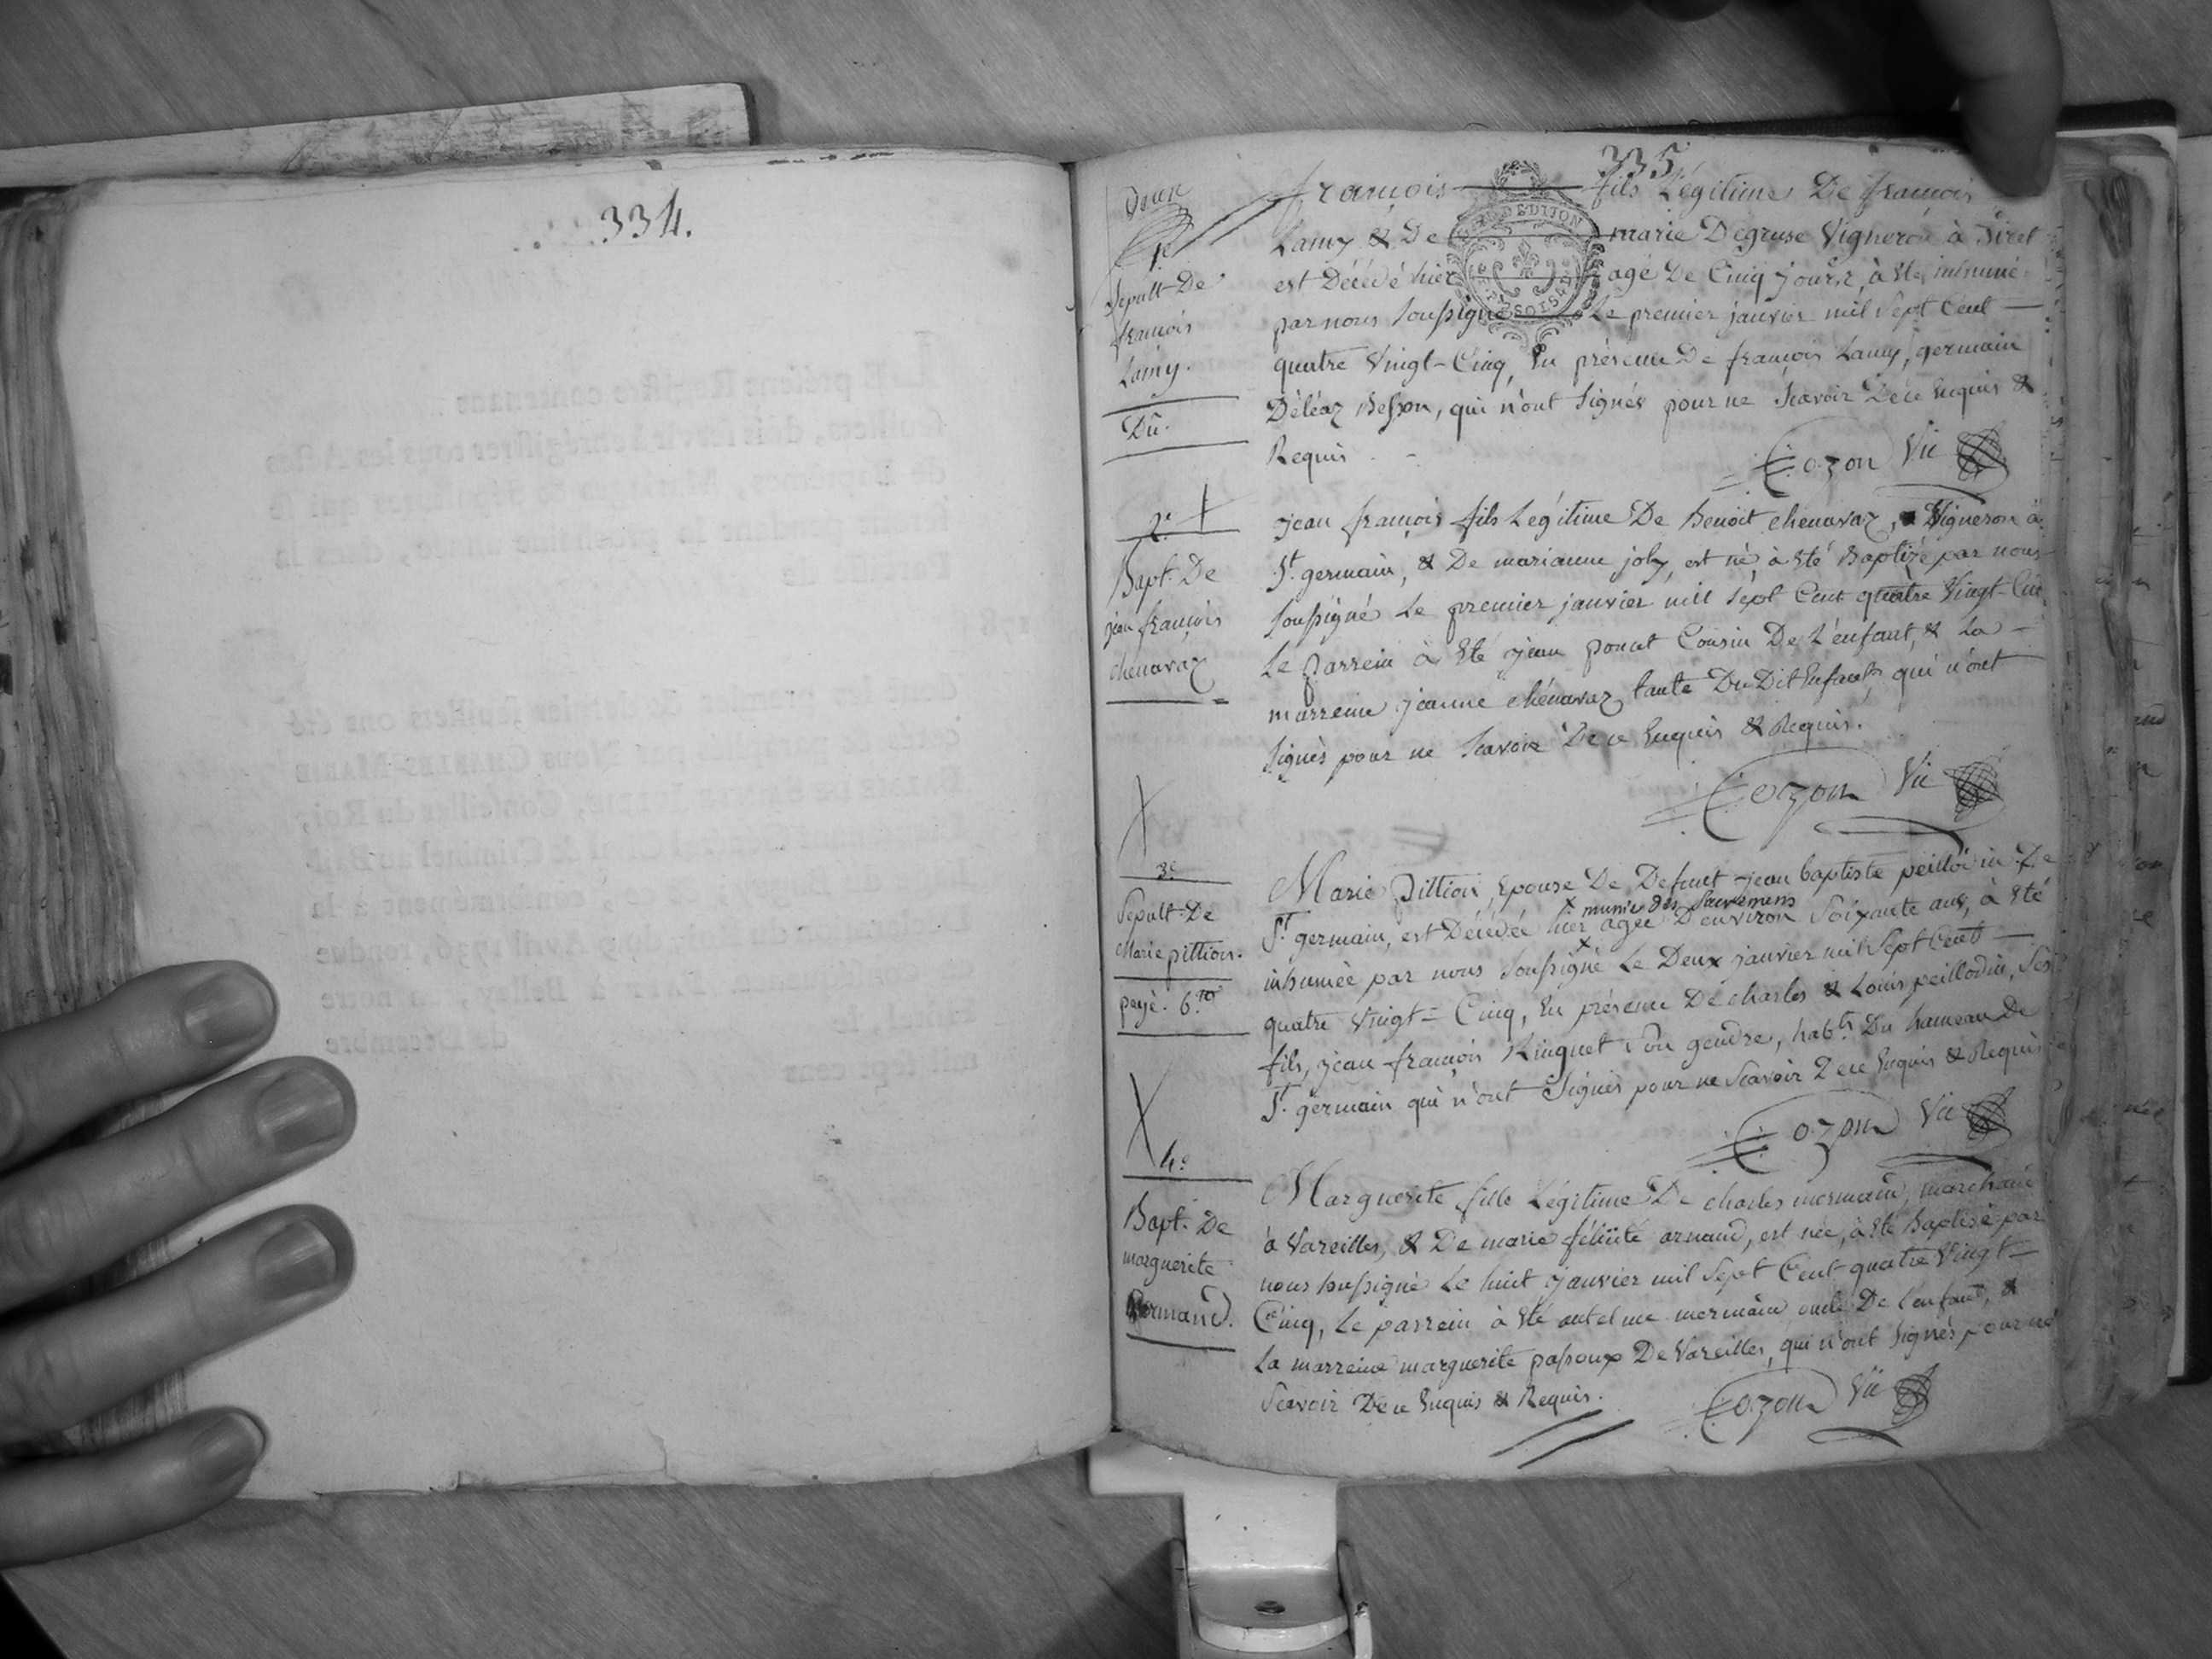 334.
335
1e
Sepult. De
françois
Lamy.
Dû.
françois fils Légitime De françois
Lamy & De marie Degruse Vigneron à
est Décédé hier agé De Cinq jours, à été inhumé
par nous soussigné Le premier janvier mil sept Cent
quatre Vingt-Cinq, En présence De françois Lamy, germain
Déléaz Besson, qui n'ont signés pour ne Scavoir De ce Enquis &
Requis
Cozon Vic
2e
Bapt. De
jean françois
chenavaz
jean françois fils Légitime De Benoit chenavaz, Vigneron à
St. germain, & De marianne joly, est né, à été Baptizé par nous
soussigné Le premier janvier mil sept Cent quatre Vingt-Cin
Le parrein à été jean poncet Cousin De L'enfant, & La
marreine jeanne chénavaz tante Du Dit Enfant, qui n'ont
signés pour ne Scavoir De ce Enquis & Requis.
Cozon Vic
3e
Sepult. De
Marie pittion.
payé. 6.
Marie Pittion, Epouse De Defunt jean baptiste peillodin De
x munie des Sacremens
St. germain, est Décédée hier agée D'environ Soixante ans, à été
inhumée par nous soussigné Le Deux janvier mil Sept Cent
quatre Vingt=Cinq, En présence De charles & Loüis peillodin, Ses
fils, jean françois Ringuet Son gendre, habts. Du hameau De
St. germain qui n'ont Signés pour ne Scavoir De ce Enquis & Requis
Cozon Vic
4e
Bapt. De
marguerite
mermand.
Marguerite fille Légitime De charles mermand, marchand
à Vareilles, & De marie féliüté arnaud, est née, à été Baptisé par
nous soussigné Le huit janvier mil Sept Cent quatre Vingt=
Cinq, Le parrein à été antelme mermand oncle De L'enfant, &
La marreine marguerite passoux De Vareilles, qui n'ont signés pour ne
Scavoir De ce Enquis & Requis.
Cozon Vic